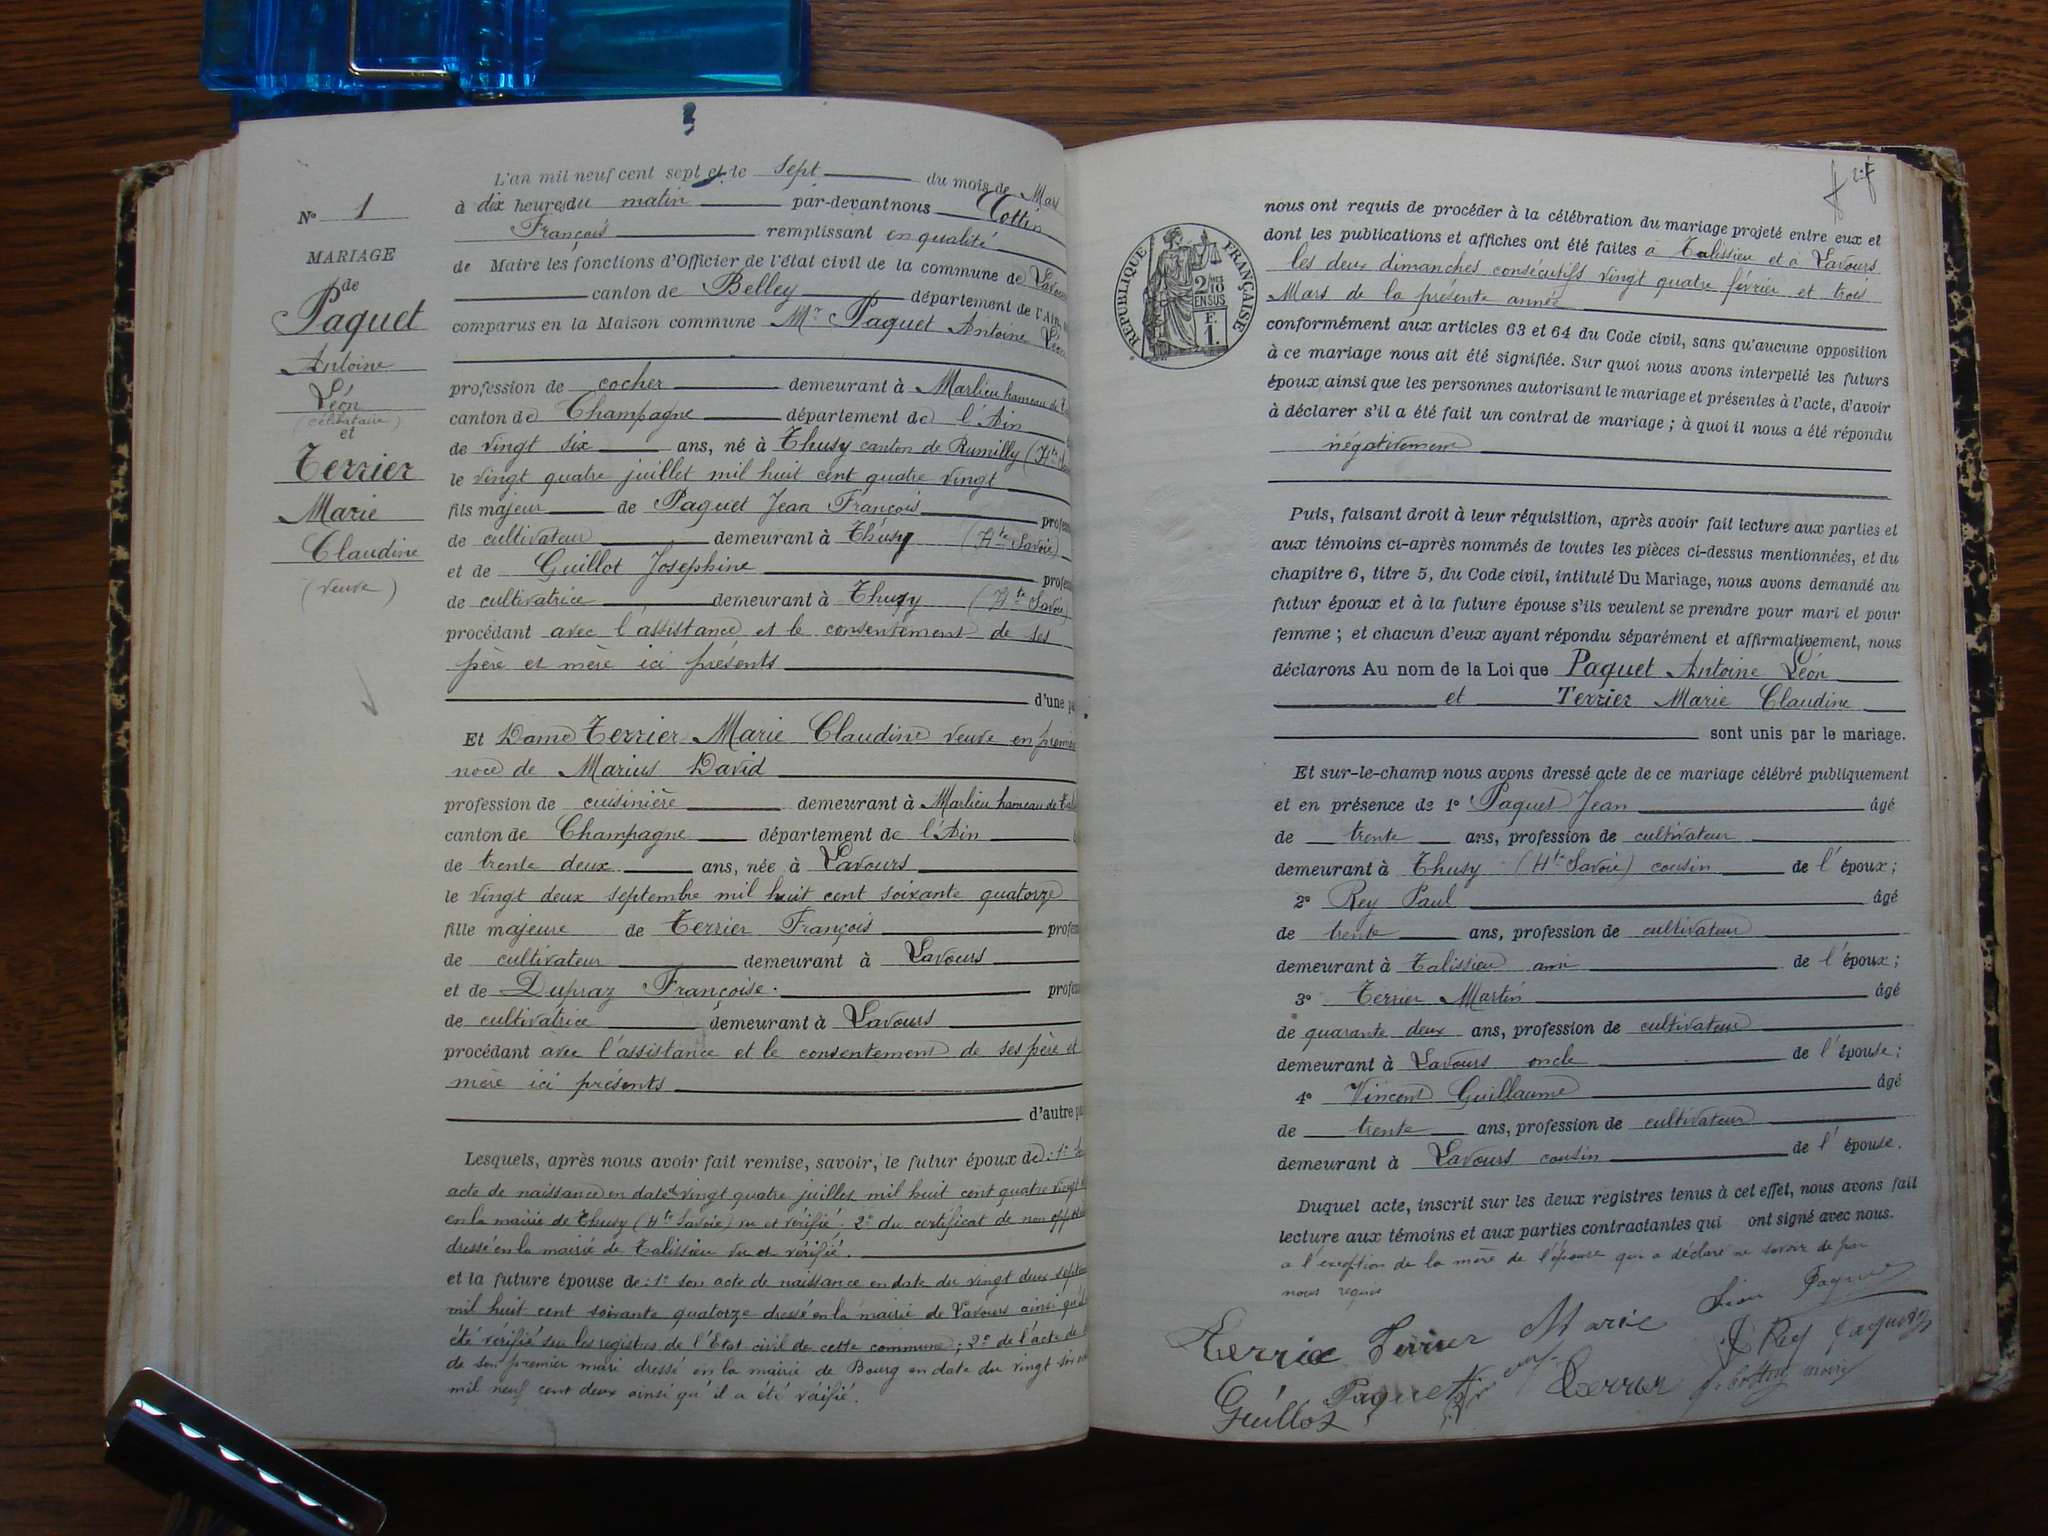 N° 1
MARIAGE
de
Paquet
Antoine
Léon
(célibataire)
et
Terrier
Marie
Claudine
(veuve)
L'an mil neuf cent sept et le sept du mois de Mars
à dix heures du matin par-devant nous Cottin
François remplissant en qualité
de Maire les fonctions d'Officier de l'état civil de la commune de Lavours
canton de Belley département de l'Ain,
comparus en la Maison commune Mr Paquet Antoine Léon
profession de cocher demeurant à Marlieu hameau de
canton de Champagne département de l'Ain
de vingt six ans, né à Thusy canton de Rumilly (Hte
le vingt quatre juillet mil huit cent quatre vingt
fils majeur de Paquet Jean François
de cultivateur demeurant à Thusy (Hte Savoie)
et de Guillot Josephine
de cultivatrice demeurant à Thusy (Hte Savoie)
procédant avec l'assistance et le consentement de ses
père et mère ici présents
d'une
Et Dame Terrier Marie Claudine veuve en
noce de Marius David
profession de cuisinière demeurant à Marlieu hameau de
canton de Champagne département de l'Ain
de trente deux ans, née à Lavours
le vingt deux septembre mil huit cent soixante quatorze
fille majeure de Terrier François
de cultivateur demeurant à Lavours
et de Dupraz Françoise.
de cultivatrice demeurant à Lavours
procédant avec l'assistance et le consentement de ses père et
mère ici présents
d'autre
Lesquels, après nous avoir fait remise, savoir, le futur époux de : 1°
acte de naissance en date vingt quatre juillet mil huit cent quatre vingt
en la mairie de Thusy (Hte Savoie) vu et vérifié. 2° du certificat de non
dressé en la mairie de Talissieu vu et vérifié.
et la future épouse de : 1° son acte de naissance en date du vingt deux
mil huit cent soixante quatorze dressé en la mairie de Lavours ainsi
été vérifié sur les registres de l'Etat civil de cette commune ; 2° de l'acte de
de son premier mari dressé en la mairie de Bourg en date du vingt six
mil neuf cent deux ainsi qu'il a été vérifié.
RÉPUBLIQUE FRANÇAISE
2/10
EN SUS
F.
1.
nous ont requis de procéder à la célébration du mariage projeté entre eux et
dont les publications et affiches ont été faites à Talissieu et à Lavours
les deux dimanches consécutifs vingt quatre février et trois
Mars de la présente année
conformément aux articles 63 et 64 du Code civil, sans qu'aucune opposition
à ce mariage nous ait été signifiée. Sur quoi nous avons interpellé les futurs
époux ainsi que les personnes autorisant le mariage et présentes à l'acte, d'avoir
à déclarer s'il a été fait un contrat de mariage ; à quoi il nous a été répondu
négativement
Puis, faisant droit à leur réquisition, après avoir fait lecture aux parties et
aux témoins ci-après nommés de toutes les pièces ci-dessus mentionnées, et du
chapitre 6, titre 5, du Code civil, intitulé Du Mariage, nous avons demandé au
futur époux et à la future épouse s'ils veulent se prendre pour mari et pour
femme ; et chacun d'eux ayant répondu séparément et affirmativement, nous
déclarons Au nom de la Loi que Paquet Antoine Léon
et Terrier Marie Claudine
sont unis par le mariage.
Et sur-le-champ nous avons dressé acte de ce mariage célébré publiquement
et en présence de 1° Paquet Jean âgé
de trente ans, profession de cultivateur
demeurant à Thusy (Hte Savoie) cousin de l'époux ;
2° Rey Paul âgé
de trente ans, profession de cultivateur
demeurant à Talissieu ami de l'époux ;
3° Terrier Martin âgé
de quarante deux ans, profession de cultivateur
demeurant à Lavours oncle de l'épouse ;
4° Vincent Guillaume âgé
de trente ans, profession de cultivateur
demeurant à Lavours cousin de l'épouse.
Duquel acte, inscrit sur les deux registres tenus à cet effet, nous avons fait
lecture aux témoins et aux parties contractantes qui ont signé avec nous.
à l'exception de la mère de l'épouse qui a déclaré ne savoir de par
nous requis
Terrier Marie
Rey Paquet
Guillot Paquet Terrier